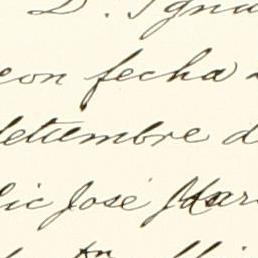 D. Igna
con fecha
setiembre d
lic José Mar